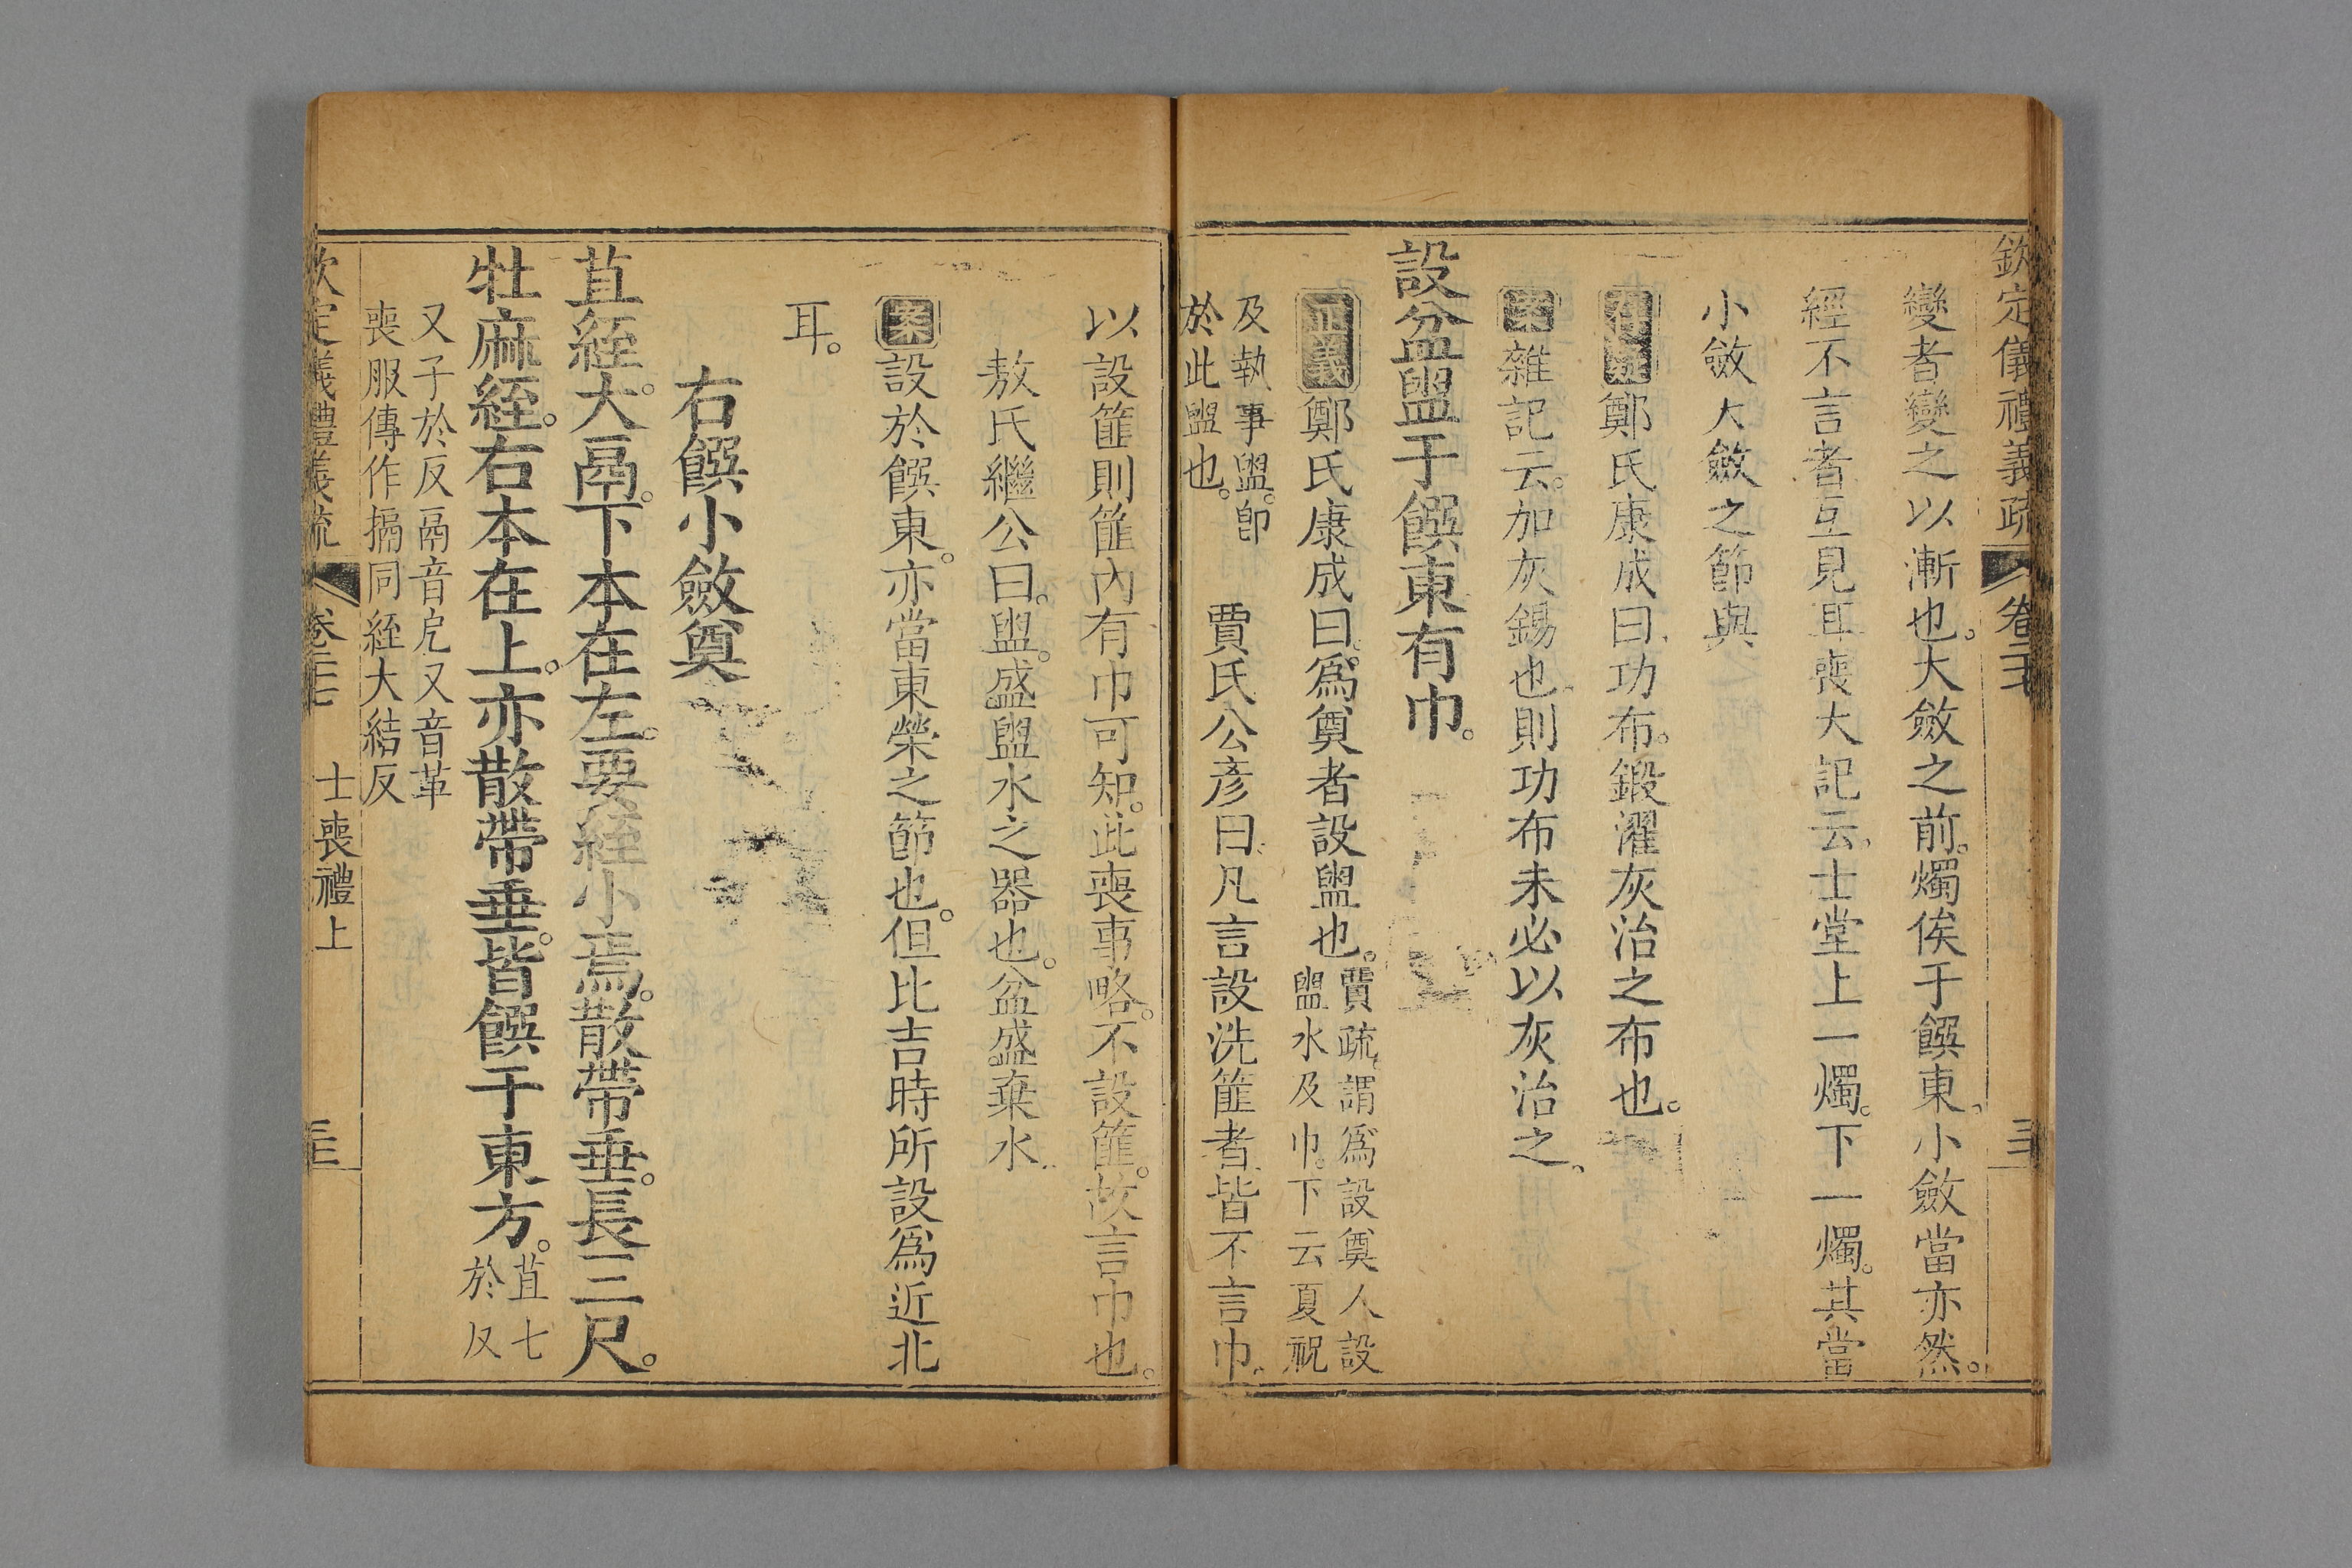 欽定儀禮義疏 卷二十七
變者變之以漸也。大斂之前。燭俟于饌東。小斂當亦然。
經不言者互見耳喪大記云士堂上一燭。下一燭。其當
小斂大斂之節與
鄭氏康成曰功布。鍛濯灰治之布也。
案雜記云。加灰錫也則功布未必以灰治之
設盆盥于饌東有巾。
正義鄭氏康成曰。爲奠者設盥也。賈疏謂爲設奠人設
盥水及巾。下云夏祝
及執事盥。卽
於此盥也。 賈氏公彥曰凡言設洗篚者皆不言巾
以設篚則篚內有巾可知。此喪事略。不設篚。故言巾也。
敖氏繼公曰。盥。盛盥水之器也。盆盛棄水
案設於饌東。亦當東榮之節也。但比吉時所設爲近北
耳。
右饌小斂奠
苴絰大。鬲。下本在左。要絰小焉。散帶垂。長三尺。
牡麻絰。右本在上。亦散帶垂。皆饌于東方。苴七
於反
又子於反鬲音戹又音革
喪服傳作搹同絰大結反
欽定儀禮義疏 卷二十七 士喪禮上